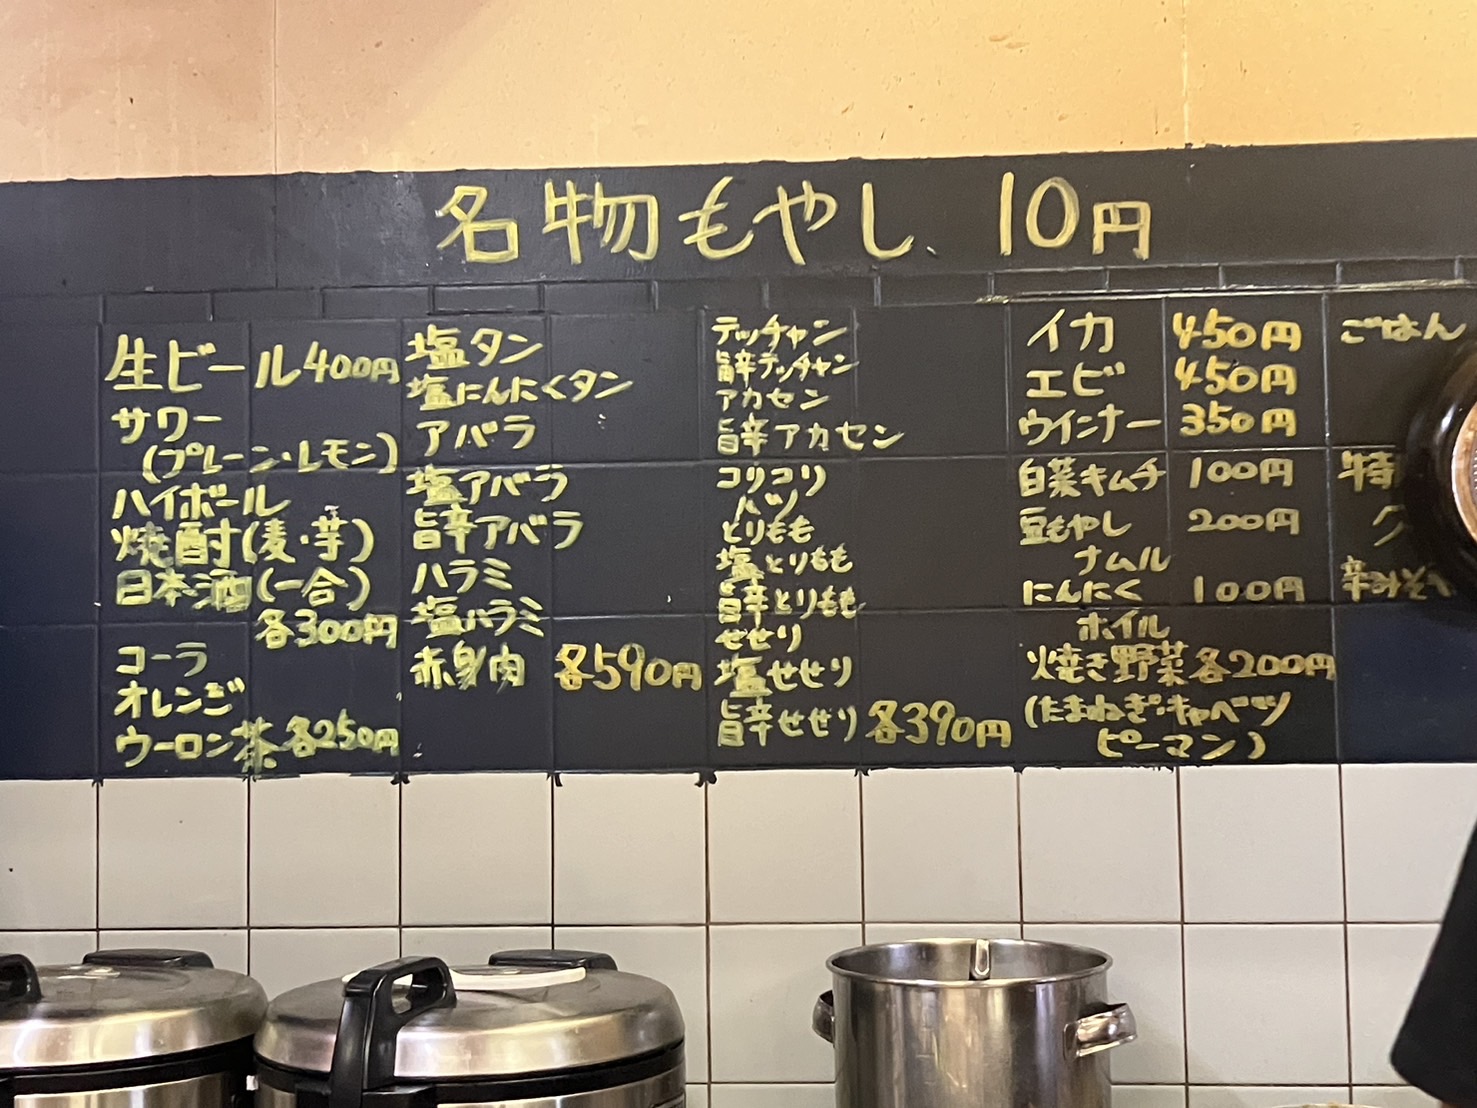 名物もやし、10円
生ビール400円
サワー
(プレーン・レモン)
ハイボール
焼酎(麦・芋)
日本酒(一合)
各300円
コーラ
オレンジ
ウーロン茶 各250円
塩タン
塩にんにくタン
アバラ
塩アバラ
旨辛アバラ
ハラミ
塩ハラミ
赤身肉 各590円
テッチャン
旨辛テッチャン
アカセン
旨辛アカセン
コリコリ
ハツ
とりもも
塩とりもも
旨辛とりもも
せせり
塩せせり
旨辛せせり 各390円
イカ 450円
エビ 450円
ウインナー 350円
白菜キムチ 100円
豆もやし 200円
ナムル
にんにく 100円
ホイル
焼き野菜 各200円
(たまねぎ・キャベツ
ピーマン)
ごはん
特
辛みそ